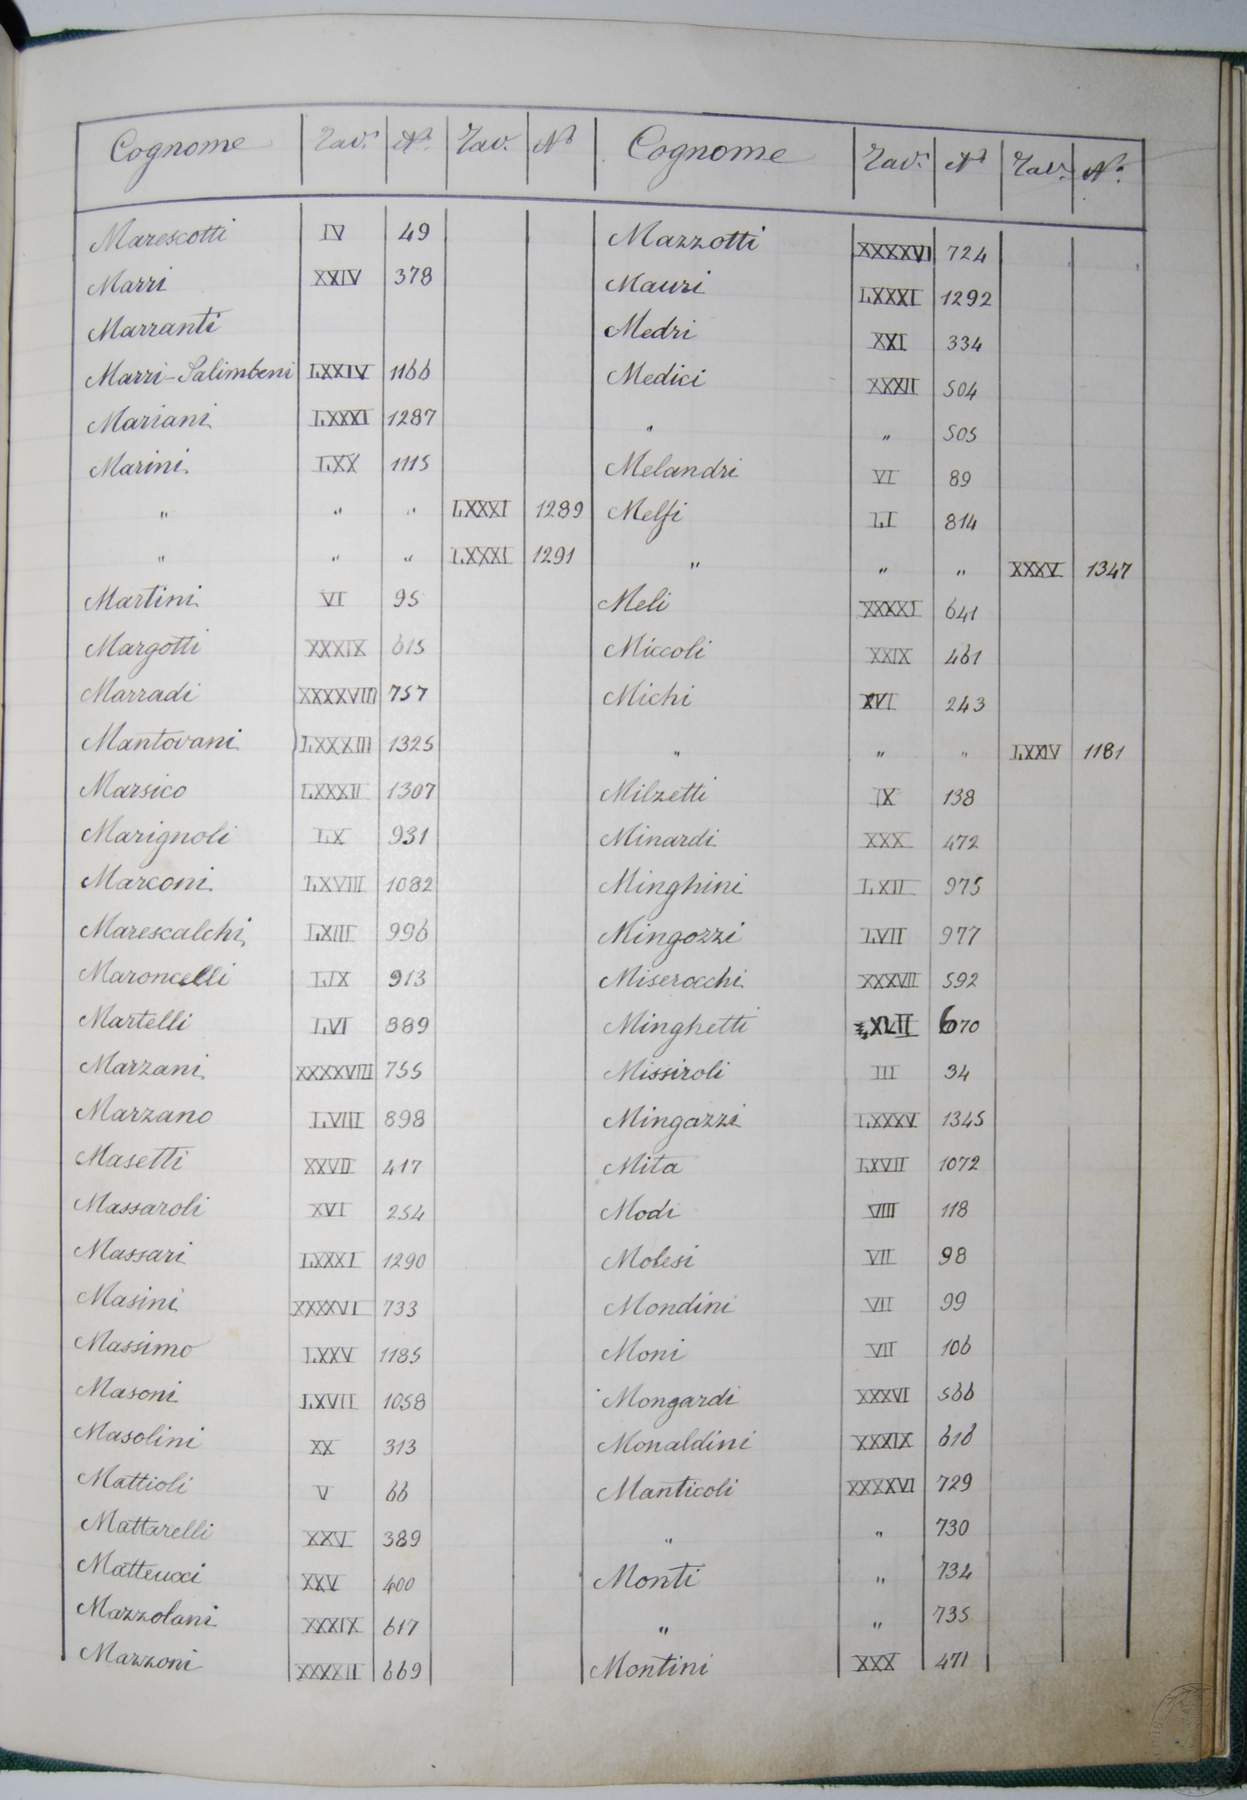 Cognome Tav. N. Tav. N. Cognome Tav. N. Tav. N.
Marescotti IV 49
Marri XXIV 378
Marranti
Marri-Salimbeni LXXIV 1166
Mariani LXXXI 1287
Marini LXX 1115
" " " LXXXI 1289
" " " LXXXI 1291
Martini VI 95
Margotti XXXIX 615
Marradi XXXXVIII 757
Mantovani LXXXIII 1325
Marsico LXXXII 1307
Marignoli LX 931
Marconi LXVIII 1082
Marescalchi LXIII 996
Maroncelli LIX 913
Martelli LVI 889
Marzani XXXXVIII 755
Marzano LVIII 898
Masetti XXVII 417
Massaroli XVI 254
Massari LXXXI 1290
Masini XXXXVI 733
Massimo LXXV 1185
Masoni LXVII 1058
Masolini XX 313
Mattioli V 66
Mattarelli XXV 389
Matteucci XXV 400
Mazzolani XXXIX 617
Mazzoni XXXXII 669
Mazzotti XXXXVI 724
Mauri LXXXI 1292
Medri XXI 334
Medici XXXII 504
" " 505
Melandri VI 89
Melfi LI 814
" " " XXXV 1347
Meli XXXXI 641
Miccoli XXIX 461
Michi XVI 243
" " " LXXIV 1181
Milzetti IX 138
Minardi XXX 472
Minghini LXII 975
Mingozzi LVII 977
Miserocchi XXXVII 592
Minghetti XLII 670
Missiroli III 34
Mingazzi LXXXV 1345
Mita LXVII 1072
Modi VIIII 118
Molesi VII 98
Mondini VII 99
Moni VII 106
Mongardi XXXVI 566
Monaldini XXXIX 616
Manticoli XXXXVI 729
" " 730
Monti " 734
" " 735
Montini XXX 471